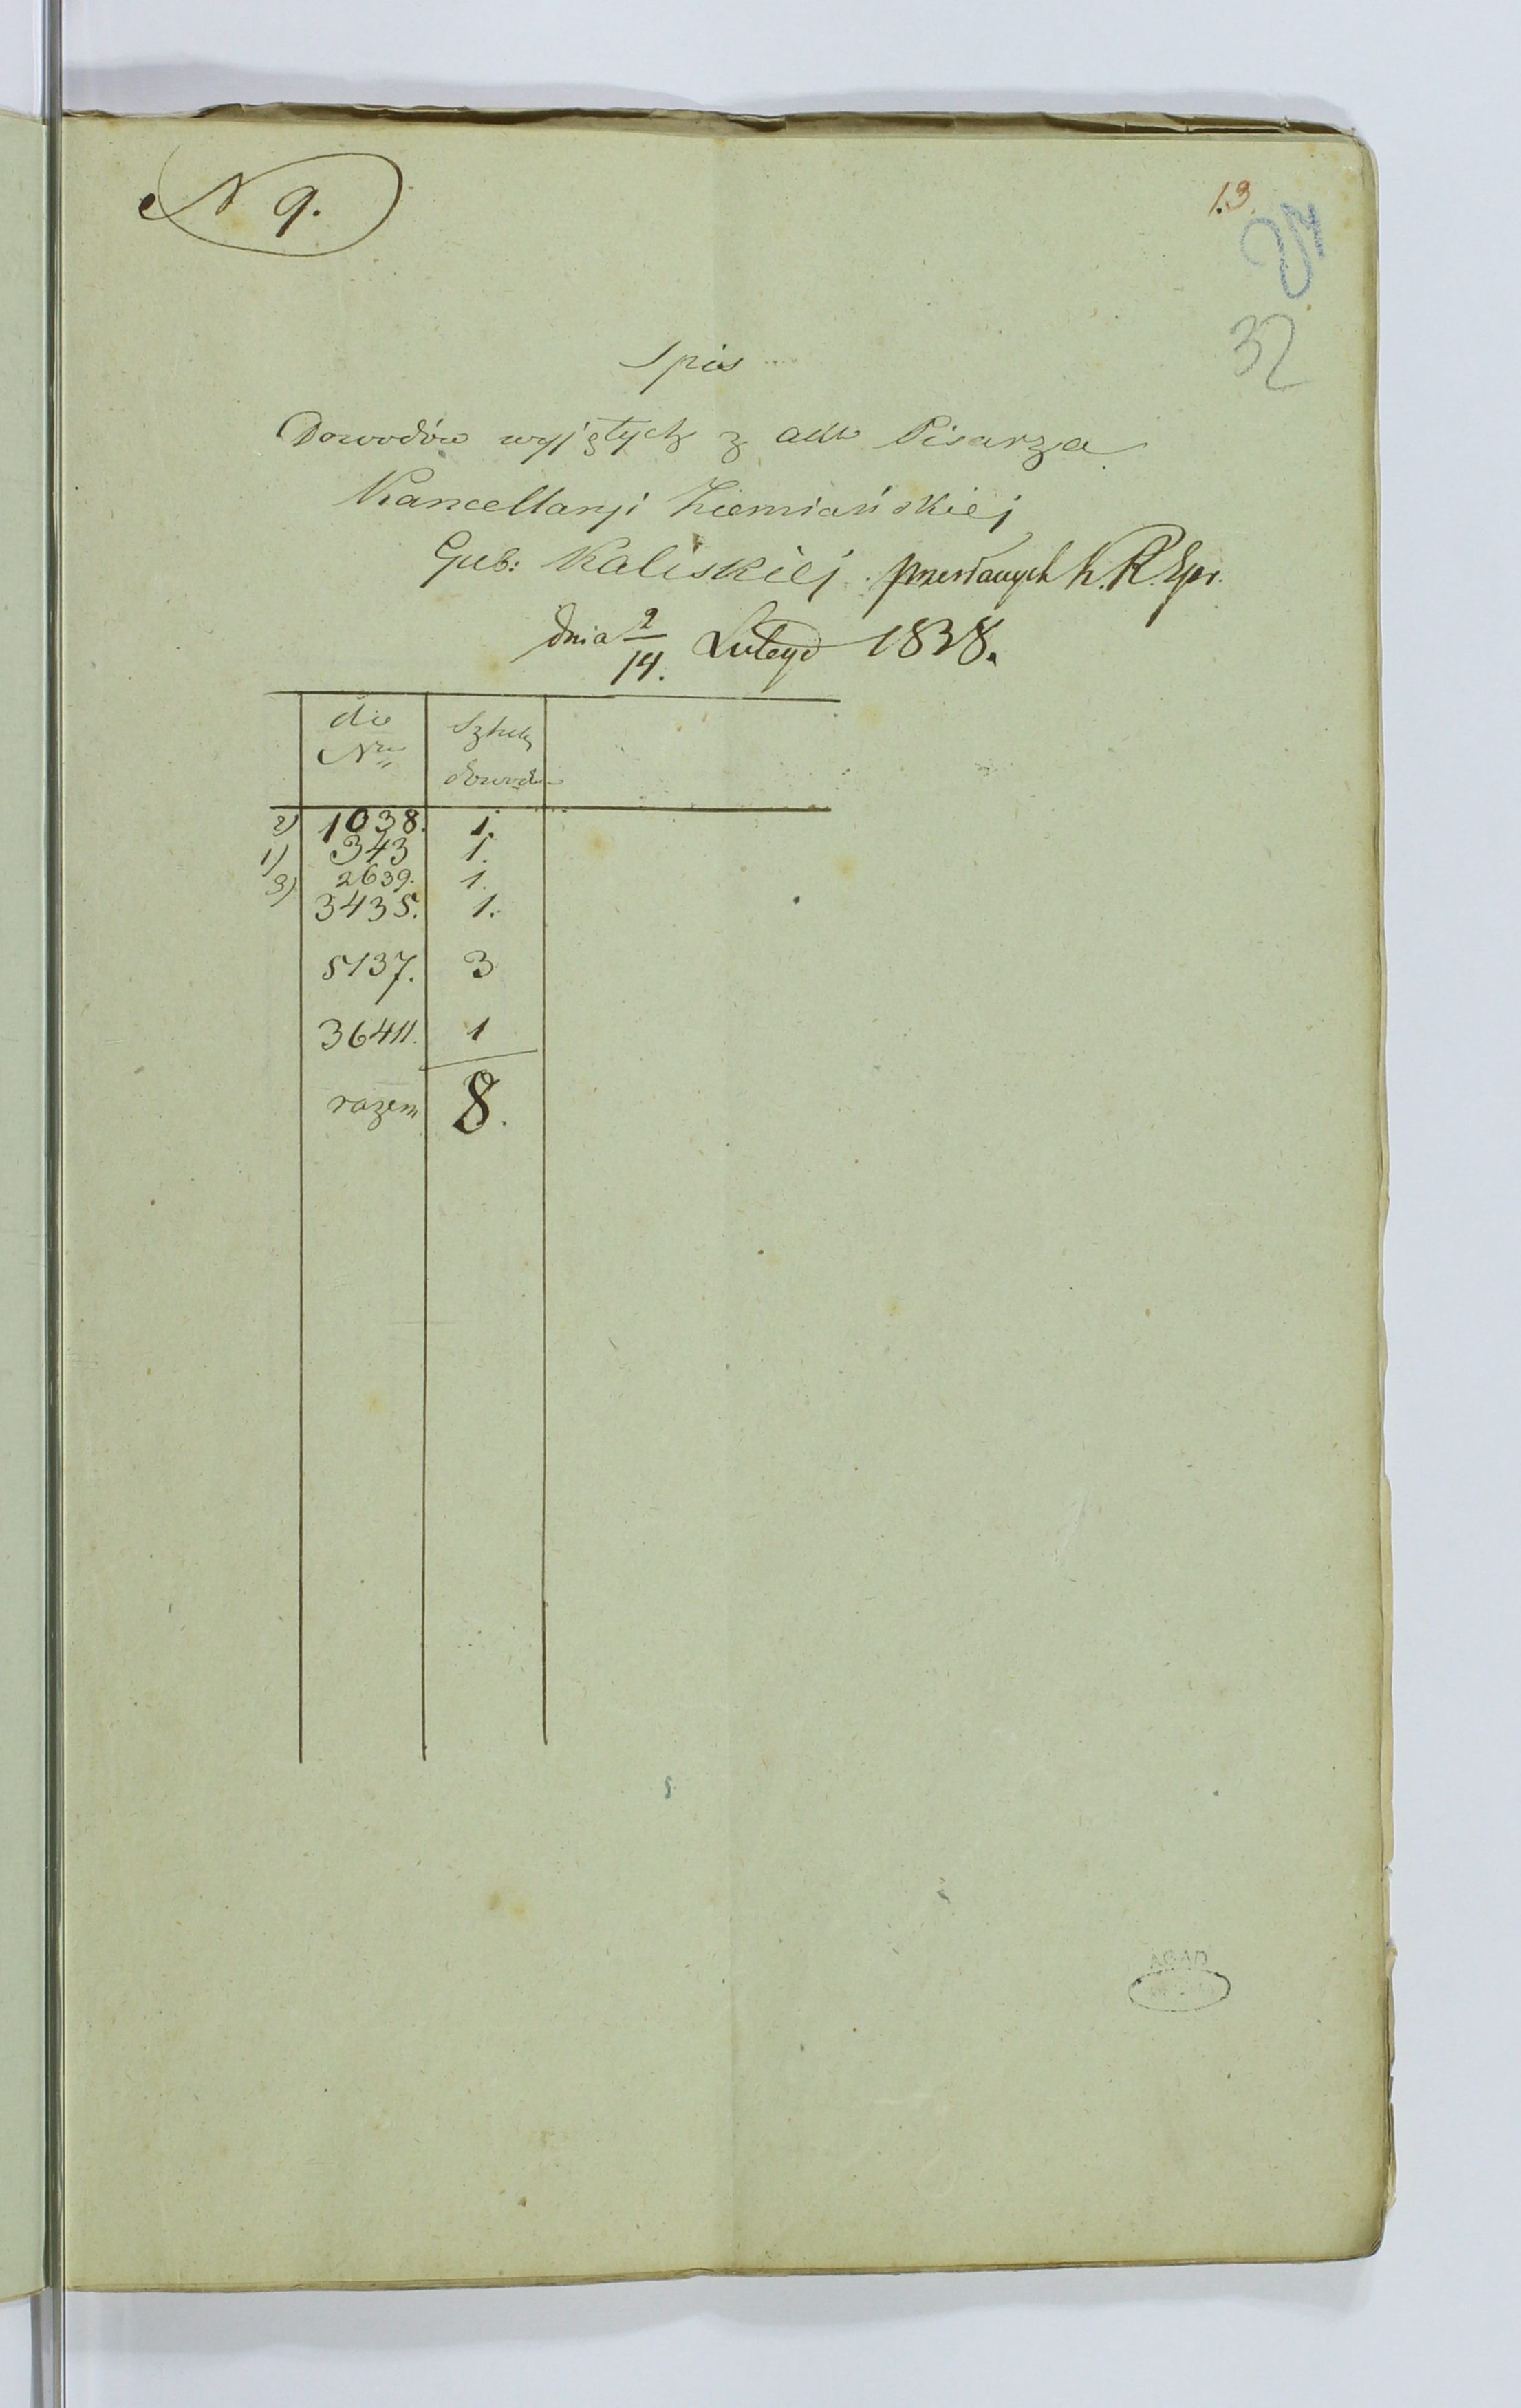 N 9.
13.
32
Spis
Dowodów wyjętych z akt Pisarza
Kancellaryi Ziemiańskiej
Gub: Kaliskiej przesłanych K. R. Spr.
dnia 2/14. Lutego 1838.
do Nru | Sztuk dowodów
2) 1038. 1.
1) 343 1.
3) 2639. 1.
3435. 1.
5137. 3
36411. 1
razem 8.
AGAD